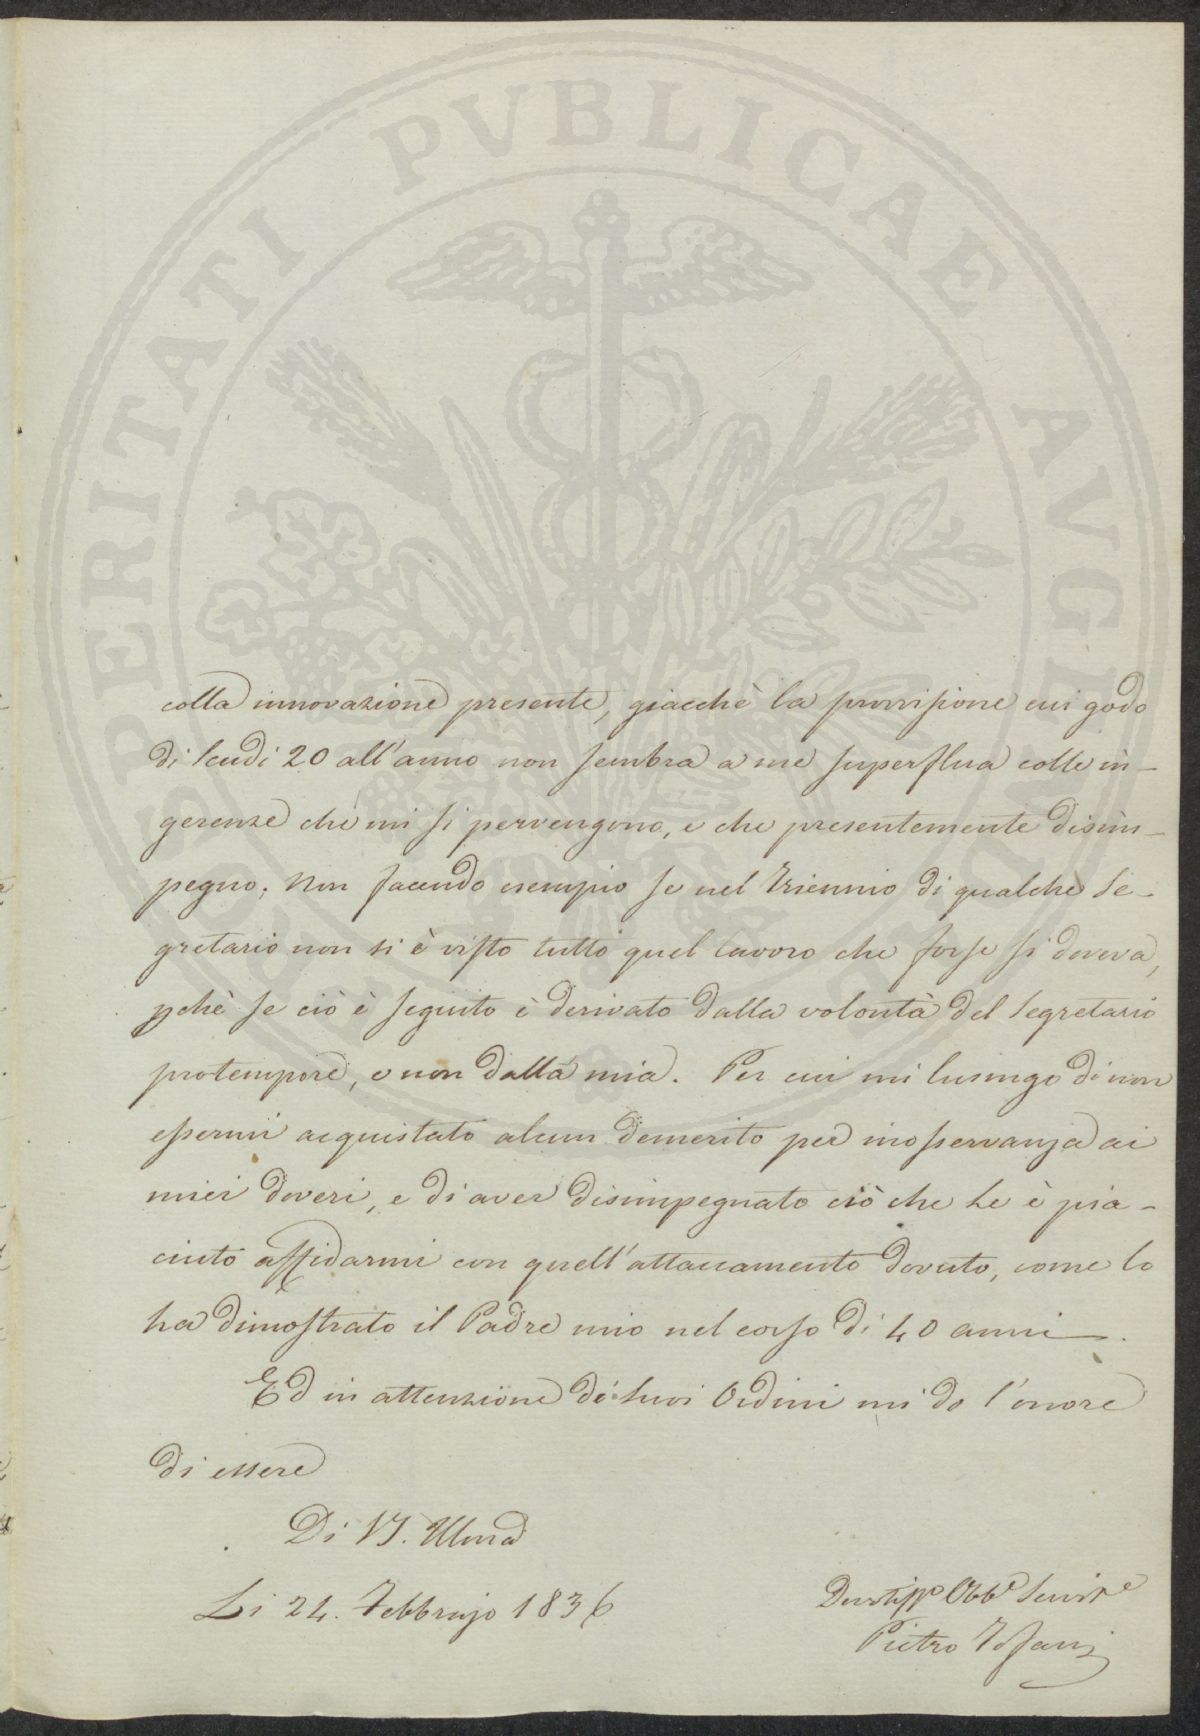 PROSPERITATI PVBLICAE AVGENDAE
colla innovazione presente, giacchè la provvisione cui godo
di scudi 20 all'anno non sembra a me superflua colle in-
gerenze che mi si pervengono, e che presentemente disim-
pegno. Non facendo esempio se nel Triennio di qualche Se-
gretario non si è visto tutto quel lavoro che forse si doveva,
pchè se ciò è seguito è derivato dalla volontà del Segretario
protempore, e non dalla mia. Per cui mi lusingo di non
essermi acquistato alcun demerito per inosservanza ai
miei doveri, e di aver disimpegnato ciò che Le è pia-
ciuto affidarmi con quell'attaccamento dovuto, come lo
ha dimostrato il Padre mio nel corso di 40 anni.
Ed in attenzione de' Suoi Ordini mi do l'onore
di essere
Di VS. Illma
Li 24. Febbrajo 1836
Devotisso Obbo Servire
Pietro